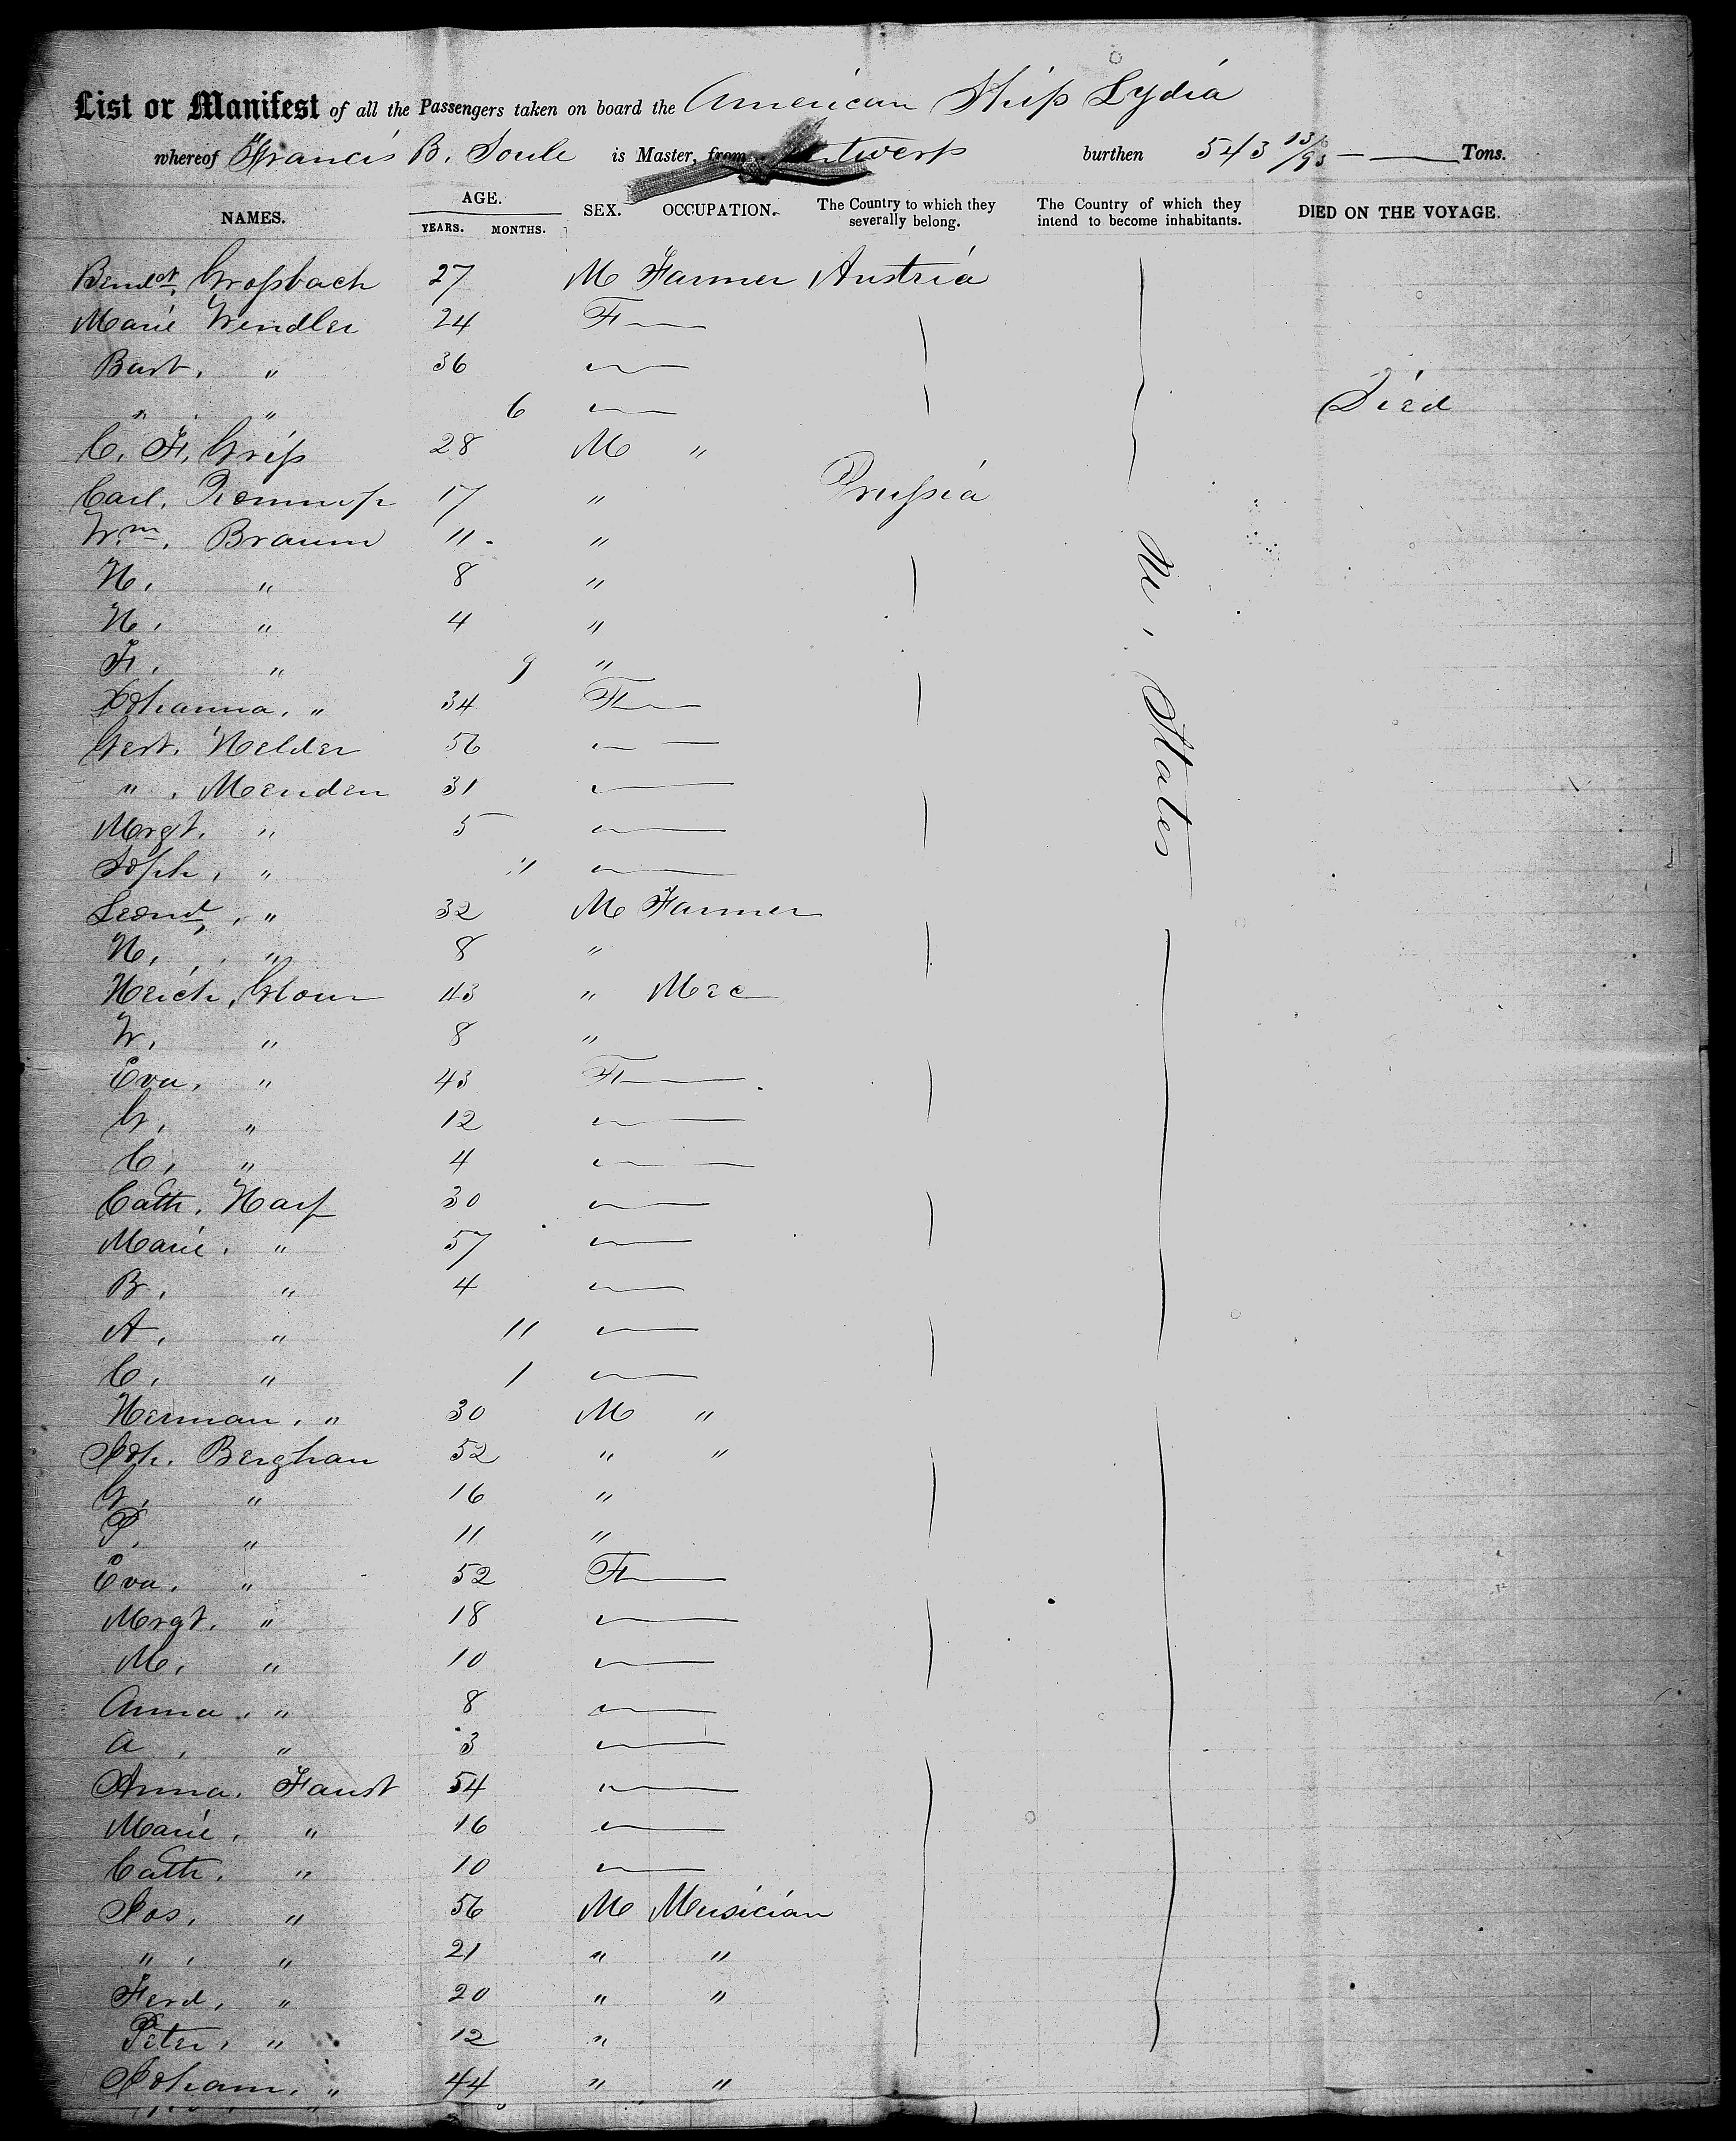 List or Manifest of all the Passengers taken on board the American Ship Lydia
whereof Francis B. Soule is Master, from Antwerp burthen 543 13/95 Tons.
NAMES. AGE. YEARS. MONTHS. SEX. OCCUPATION. The Country to which they severally belong. The Country of which they intend to become inhabitants. DIED ON THE VOYAGE.
Bendt. Großbach 27 M Farmer Austria
Marie Wendler 24 F
Bart. " 36
" " 6 Died
C. F. Griß 28 M "
Carl. 17 " Prußia
Wm. Braun 11 "
H. " 8 "
H. " 4 "
F. " 9 "
Johanna. " 34 F
Gert. Helder 56
" . Menden 31
Mrgt. " 5
Soph. " 11
Leond. " 32 M Farmer
H. " 8 "
Heich. 43 " Mec
W. " 8 "
Eva. " 43 F
G. " 12
C. " 4
Cath. Harf 30
Marie. " 57
B. " 4
A. " 11
C. " 1
Herman. " 30 M "
Joh. Berghan 52 " "
G. " 16 "
P. " 11 "
Eva. " 52 F
Mrgt. " 18
M. " 10
Anna. " 8
A. " 3
Anna. Faust 54
Marie. " 16
Cath. " 10
Jos. " 56 M Musician
" . " 21 " "
Ferd. " 20 " "
Peter. " 12 "
Joham. " 44 " "
Un. States